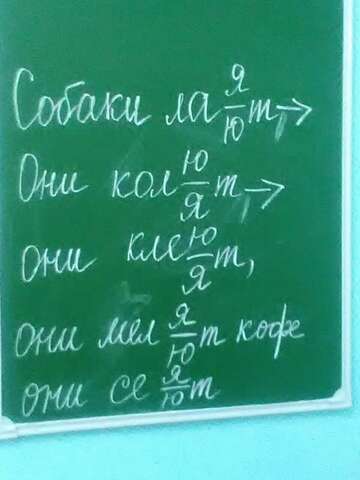 Собаки ла я/ю т, →
Они кол ю/я т, →
они кле ю/я т,
они мел я/ю т кофе
они се я/ю т